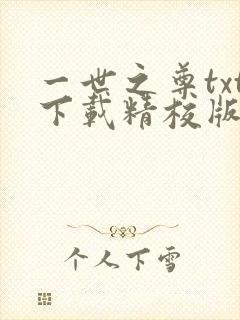 一世之尊txt
下载精校版
个人下雪